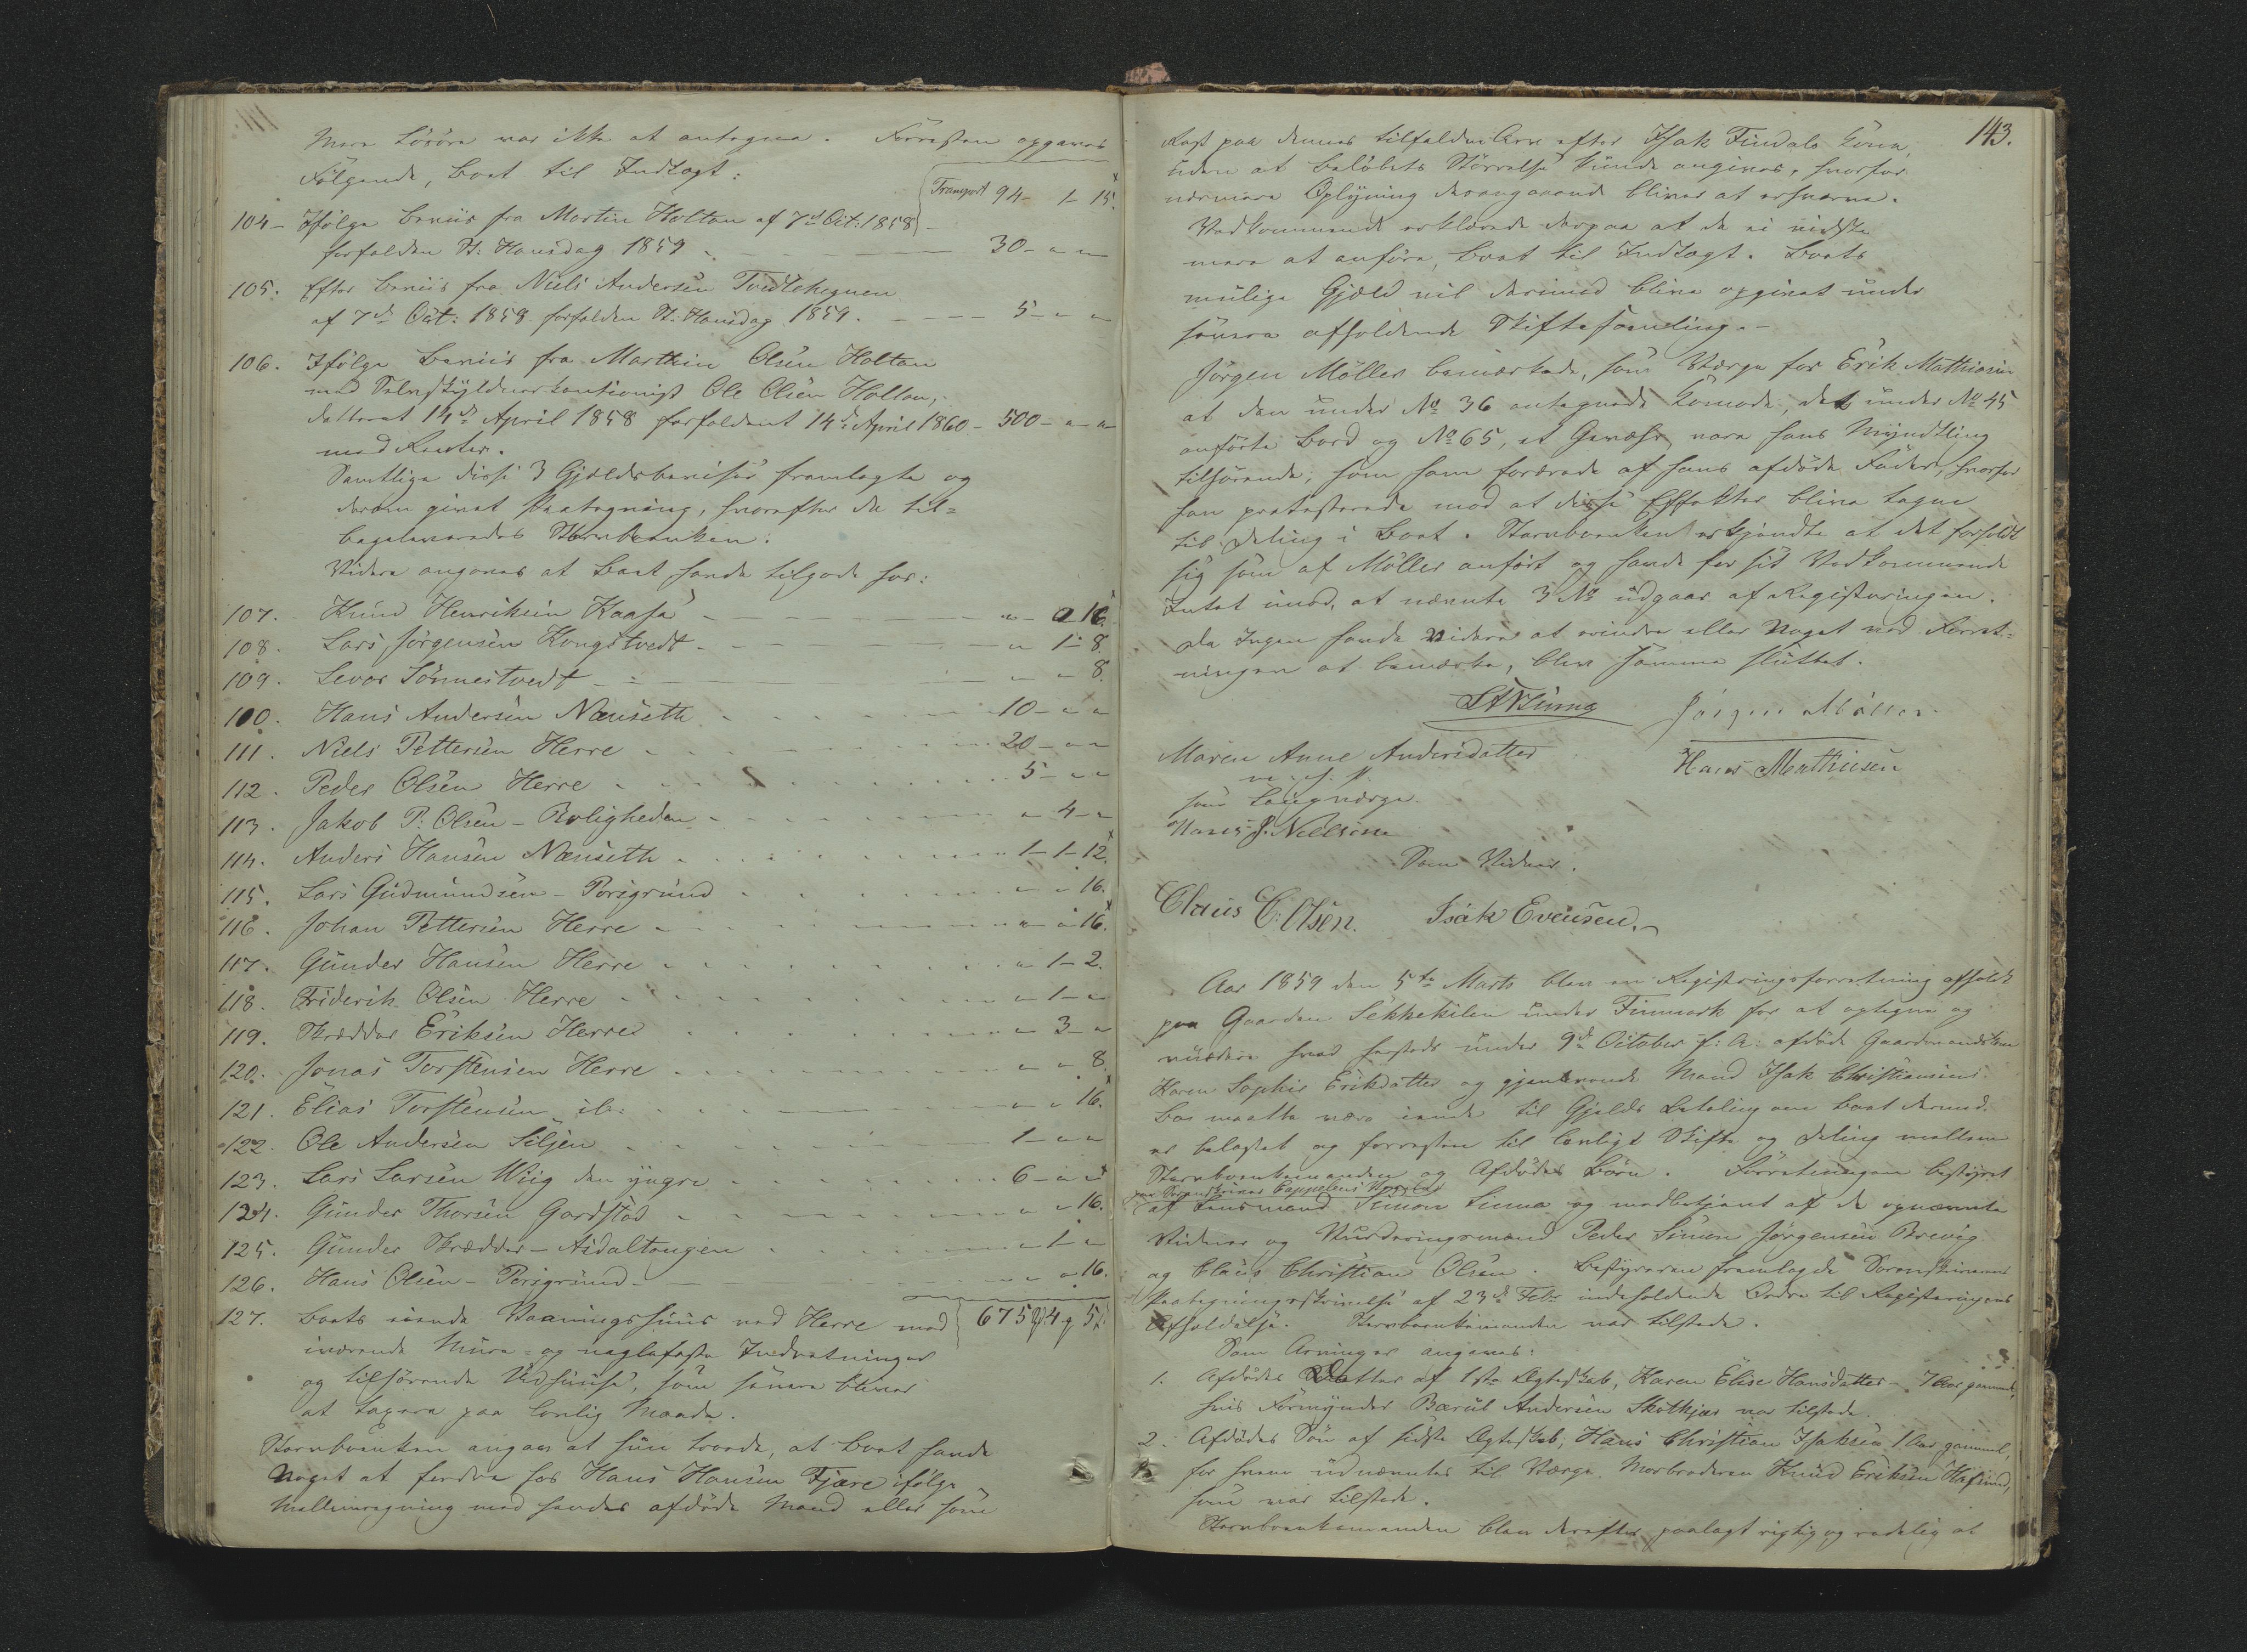 Mere Løsøre var ikke at antegne. Forresten opgaves
Følgende, Boet til Indtægt:
Transport 94 - 1 - 15.
104 - Ifølge Beviis fra Martin Holtan af 7de Oct: 1858
forfalden St: Hansdag 1859 - 30 - " - "
105. Efter Beviis fra Niels Andersen Tvedtehegnen
af 7de Oct: 1858 forfalden St: Hansdag 1859. - 5 - " - "
106. Ifølge Beviis fra Marthin Olsen Holtan
med Selvskyldnerkautionist Ole Olsen Holtan,
datteret 14de April 1858 forfaldent 14de April 1860 - 500 - " - "
med Renter.
Samtlige disse 3 Gjeldsbeviser fremlagte og
derom givet Paategning, hvorefter de til=
bageleveredes Stervboenken.
Videre angaves at Boet havde tilgode hos:
107. Knud Henriksen Kaasa - " - " 16.
108. Lars Jørgensen Kongstvedt - " 1 - 8.
109. Levor Sønnestvedt - " - " 8.
100. Hans Andersen Nænseth 10 - " - "
111. Niels Pettersen Herre 20 - " - "
112. Peder Olsen Herre 5 - " - "
113. Jakob P. Olsen - Boligheden - " - 4 - "
114. Anders Hansen Nænseth 1 - 1 - 12.
115. Lars Gudmundsen - Porsgrund " - " 16.
116. Johan Pettersen Herre " - " 16.
117. Gunder Hansen Herre " 1 - 2.
118. Friderik Olsen Herre " - 1 - "
119. Skrædder Eriksen Herre " 3 - "
120. Jonas Torstensen Herre " - " 8.
121. Elias Torstensen ib: " - " 16.
122. Ole Andersen Siljen 1 - " - "
123. Lars Larsen Wiig den yngre 6 - " - "
124. Gunder Thorsen Gardstad " - " 16.
125. Gunder Skrædder - Asdaltangen " - 1 - "
126. Hans Olsen - Porsgrund - " - " 16.
127. Boets eiende Vaaningshuus ved Herre med 675 4 5
iværende Muur= og naglefaste Indretninger
og tilhørende Udhuuse, som senere bliver
at taxere paa lovlig Maade.
Stervboenken angav at hun troede, at Boet havde
Noget at fordre hos Hans Hansen Fjære ifølge
Mellemregning med hendes afdøde Mand eller som
143.
Rest paa dennes tilfaldne Arv efter Isak Findals Kone,
uden at Beløbets Størrelse kunde angives, hvorfor
nærmere Oplysning desangaaende bliver at erhverve.
Vedkommende erklærede derpaa at de ei vidste
mere at anføre, Boet til Indtægt. Boets
mulige Gjæld vil derimod blive opgivet under
senere afholdende Skiftesamling. -
Jørgen Møller bemærkede, som Værge for Erik Mathiesen
at den under No 36 antegnede Komode, det under No 45
anførte Bord og No 65, et Gevæhr, vare hans Myndtling
tilhørende, som ham forærede af hans afdøde Fader, hvorfor
han protesterede mod at disse Effekter bliver tagne
til Deling i Boet. Stervboenken erkjendte at det forholdt
sig som af Møller anført og havde for sit Vedkommende
Intet imod, at nævnte 3 No udgaar af Registeringen.
Da Ingen havde videre at erindre eller Noget ved Forret=
ningen at bemærke, blev samme sluttet.
Jørgen Møller.
Maren Anne Andersdatter
m. p. P.
Hans Mathiesen
som Laugværge
Hans J. Nielsen
Som Vidner.
Claus C. Olsen. Isak Evensen.
Aar 1859 den 5te Marts blev en Registeringsforretning afholdt
paa Gaarden Sekkekilen under Finmark for at optegne og
vurdere hvad hersteds under 9de October f: A: afdøde Gaardmandskone
Karen Sophie Eriksdatter og gjenlevende Mand Isak Christiansens
Bo maatte være eiende til Gjelds Betaling om Boet dermed
er belastet og forresten til lovligt Skifte og Deling mellem
Stervboenkemanden og Afdødes Børn. Forretningen bestyret
paa Sorenskriver Cappelens Vegne
af Lensmand Simon Linna og medbetjent af de opnævnte
Vidner og Vurderingsmænd Peder Simon Jørgensen Brevig
og Claus Christian Olsen. Bestyreren fremlagde Sorenskriverens
Paategningsskrivelse af 23de Febr indeholdende Ordre til Registeringens
Afholdelse. Stervboenkemanden var tilstede.
Som Arvinger angaves:
1. Afdødes Datter af 1ste Ægteskab, Karen Elise Hansdatter - 7 Aar gammel,
hvis Formynder Bærul Andersen Skotkjær var tilstede.
2. Afdødes Søn af sidste Ægteskab, Hans Christian Isaksen 1 Aar gammel,
for hvem udnævntes til Værge Morbroderen Knud Eriksen Hafsund,
som var tilstede.
Stervboenkemanden blev derefter paalagt rigtig og redelig at